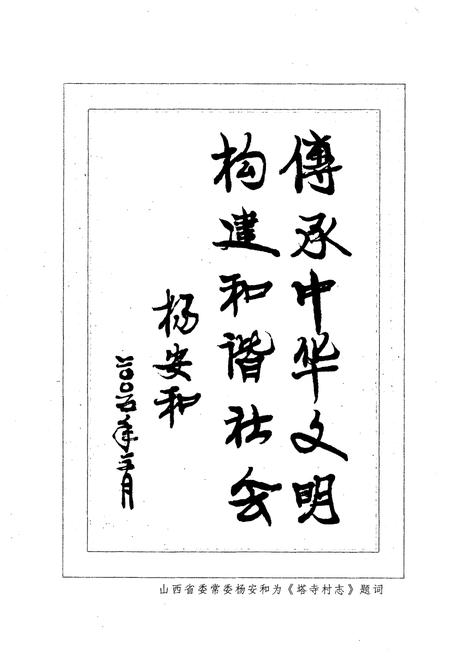 傳承中华文明
构建和谐社会
杨安和
二〇〇五年三月
山西省委常委杨安和为《塔寺村志》题词